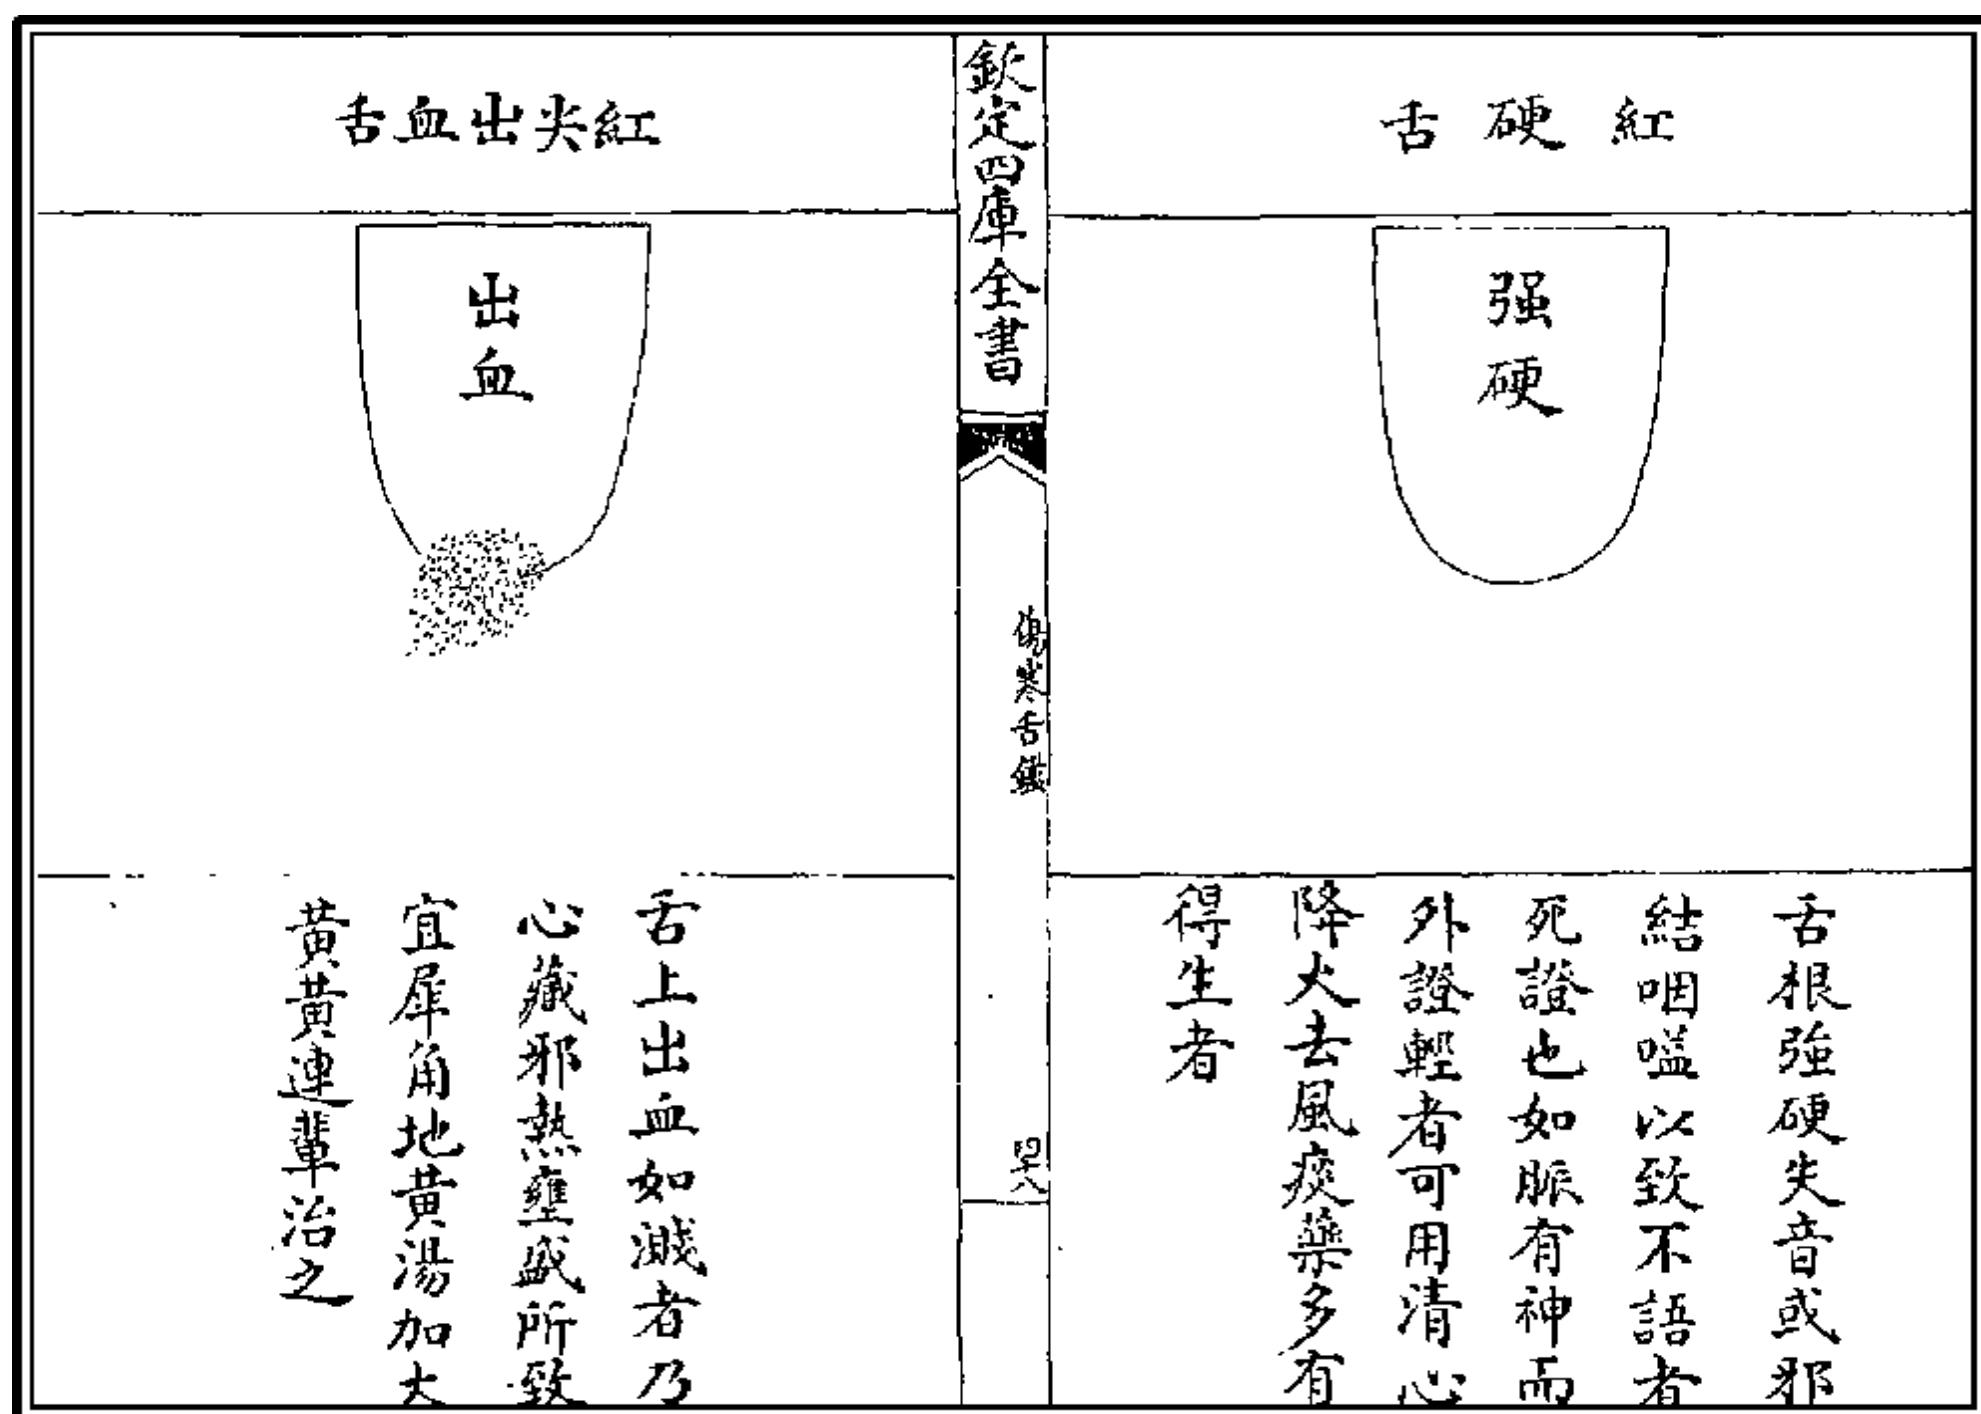 紅硬舌
强硬
舌根強硬失音或邪
結咽嗌以致不語者
死證也如脈有神而
外證輕者可用清心
降火去風痰藥多有
得生者
欽定四庫全書
傷寒舌鑑
四十八
紅尖出血舌
出血
舌上出血如濺者乃
心藏邪熱壅盛所致
宜犀角地黄湯加大
黄黄連輩治之